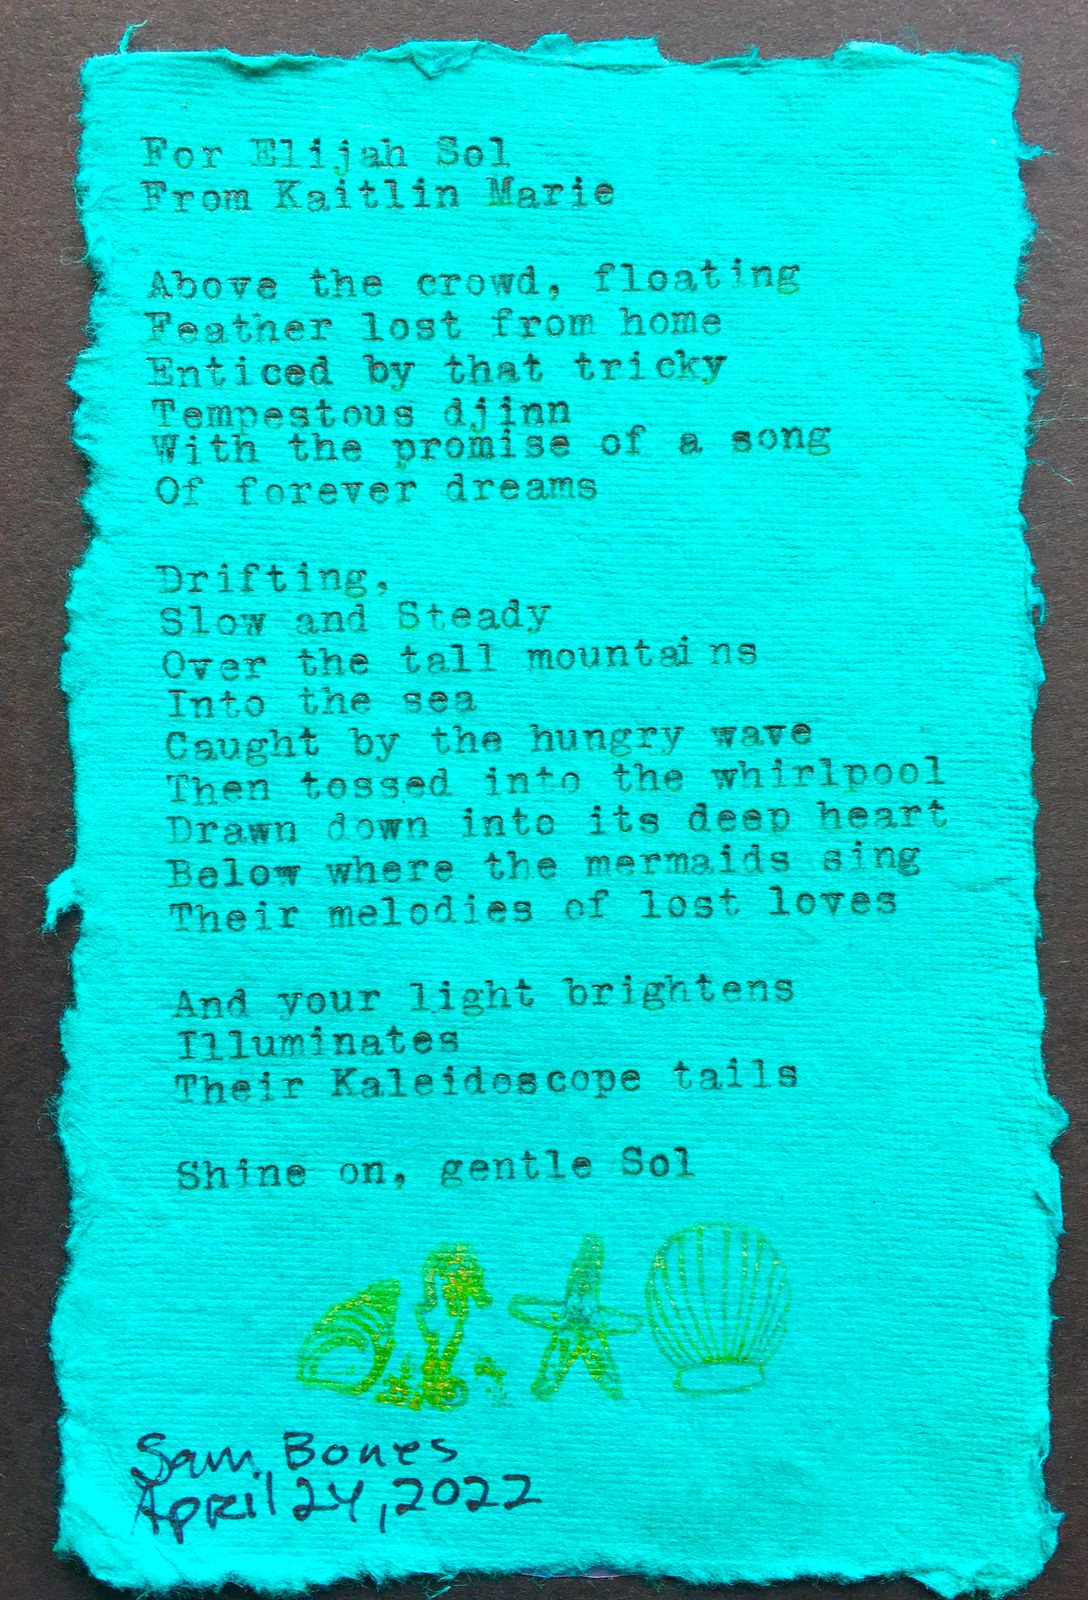 For Elijah Sol
From Kaitlin Marie
Above the crowd, floating
Feather lost from home
Enticed by that tricky
Tempestous djinn
With the promise of a song
Of forever dreams
Drifting,
Slow and Steady
Over the tall mountains
Into the sea
Caught by the hungry wave
Then tossed into the whirlpool
Drawn down into its deep heart
Below where the mermaids sing
Their melodies of lost loves
And your light brightens
Illuminates
Their Kaleidoscope tails
Shine on, gentle Sol
Sam Bones
April 24, 2022